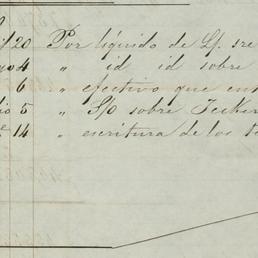 20 Por líquido de L/. sre
4 " id id sobre
6 " efectivo que en
5 " S/o sobre Jecker
14 " escritura de los